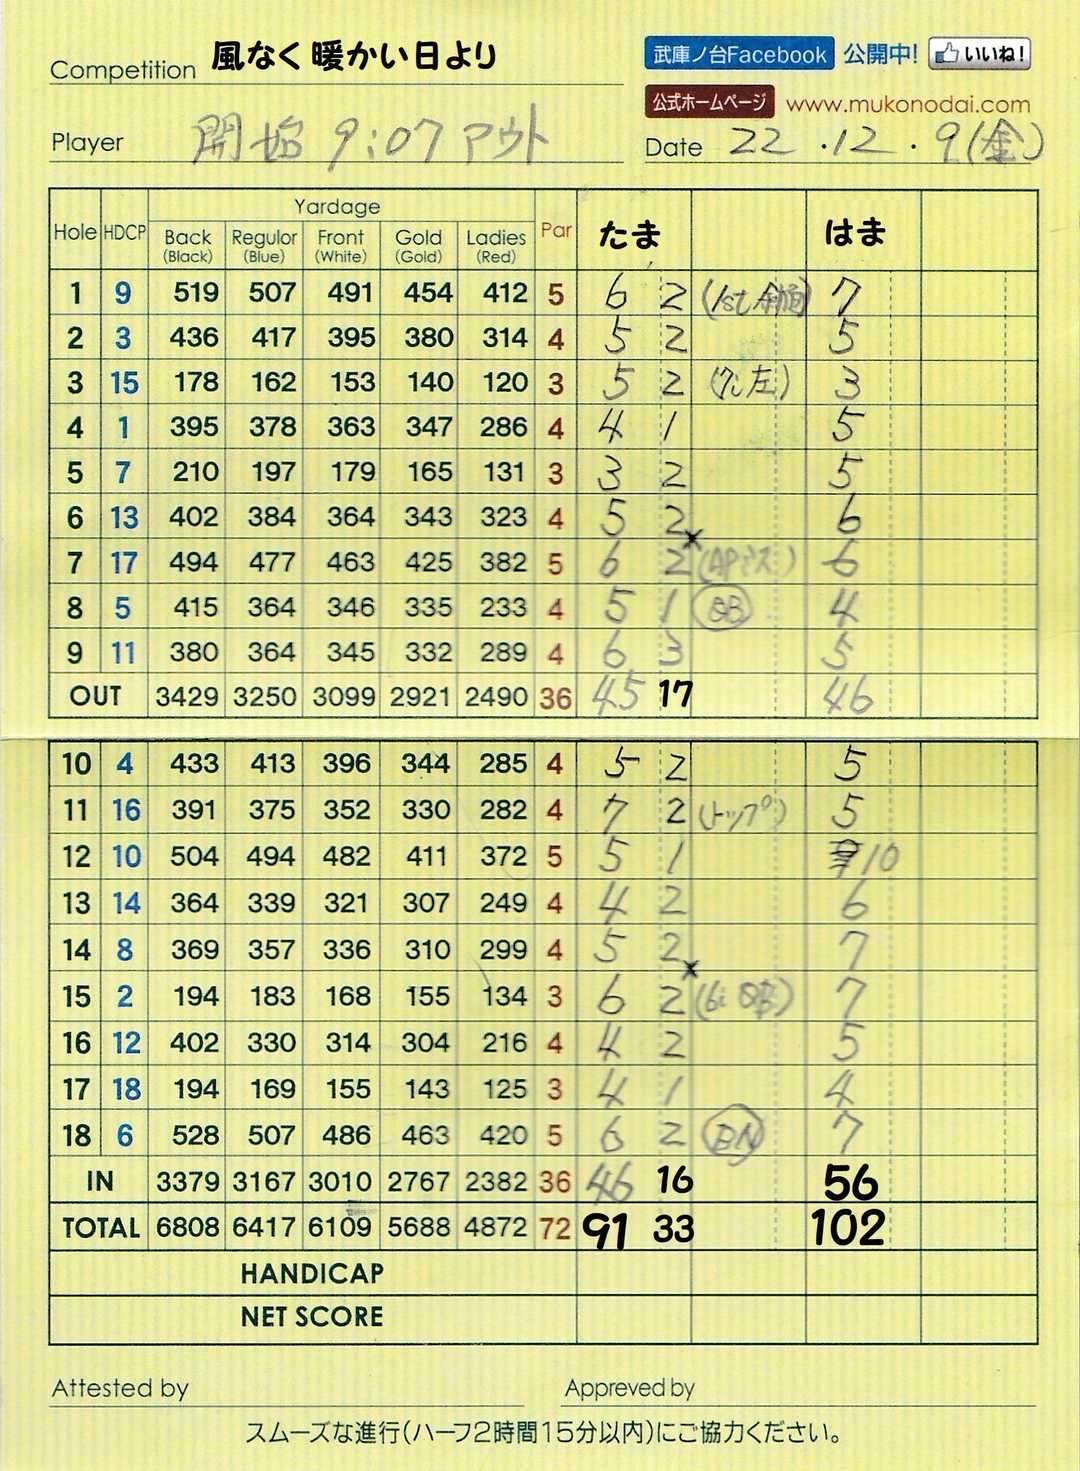 風なく 暖かい日より
Competition
武庫ノ台Facebook 公開中! いいね!
公式ホームページ www.mukonodai.com
Player 開始 9:07 アウト
Date 22.12.9(金)
Hole HDCP Yardage Par たま はま
Back (Black) Regulor (Blue) Front (White) Gold (Gold) Ladies (Red)
1 9 519 507 491 454 412 5 6 2 (1st 7
2 3 436 417 395 380 314 4 5 2 5
3 15 178 162 153 140 120 3 5 2 (7i 左) 3
4 1 395 378 363 347 286 4 4 1 5
5 7 210 197 179 165 131 3 3 2 5
6 13 402 384 364 343 323 4 5 2 6
7 17 494 477 463 425 382 5 6 2 x (APミス) 6
8 5 415 364 346 335 233 4 5 1 OB 4
9 11 380 364 345 332 289 4 6 3 5
OUT 3429 3250 3099 2921 2490 36 45 17 46
10 4 433 413 396 344 285 4 5 2 5
11 16 391 375 352 330 282 4 7 2 (トップ) 5
12 10 504 494 482 411 372 5 5 1 10
13 14 364 339 321 307 249 4 4 2 6
14 8 369 357 336 310 299 4 5 2 7
15 2 194 183 168 155 134 3 6 2 x (6i 7
16 12 402 330 314 304 216 4 4 2 5
17 18 194 169 155 143 125 3 4 1 4
18 6 528 507 486 463 420 5 6 2 BN 7
IN 3379 3167 3010 2767 2382 36 46 16 56
TOTAL 6808 6417 6109 5688 4872 72 91 33 102
HANDICAP
NET SCORE
Attested by Appreved by
スムーズな進行(ハーフ2時間15分以内)にご協力ください。